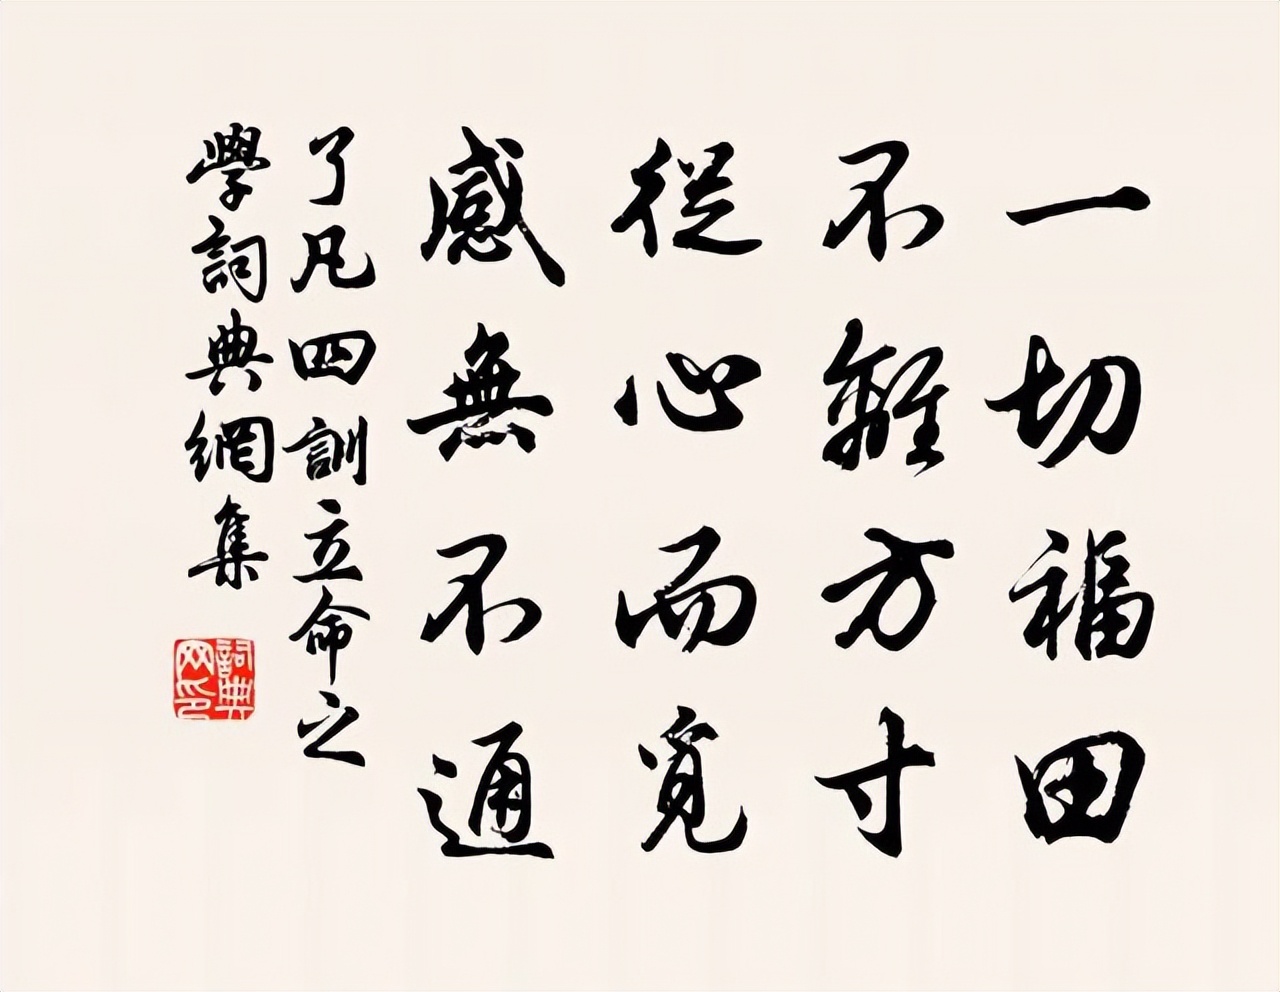 一切福田
不離方寸
從心而覓
感無不通
了凡四訓立命之
學詞典網集
詞典
网印